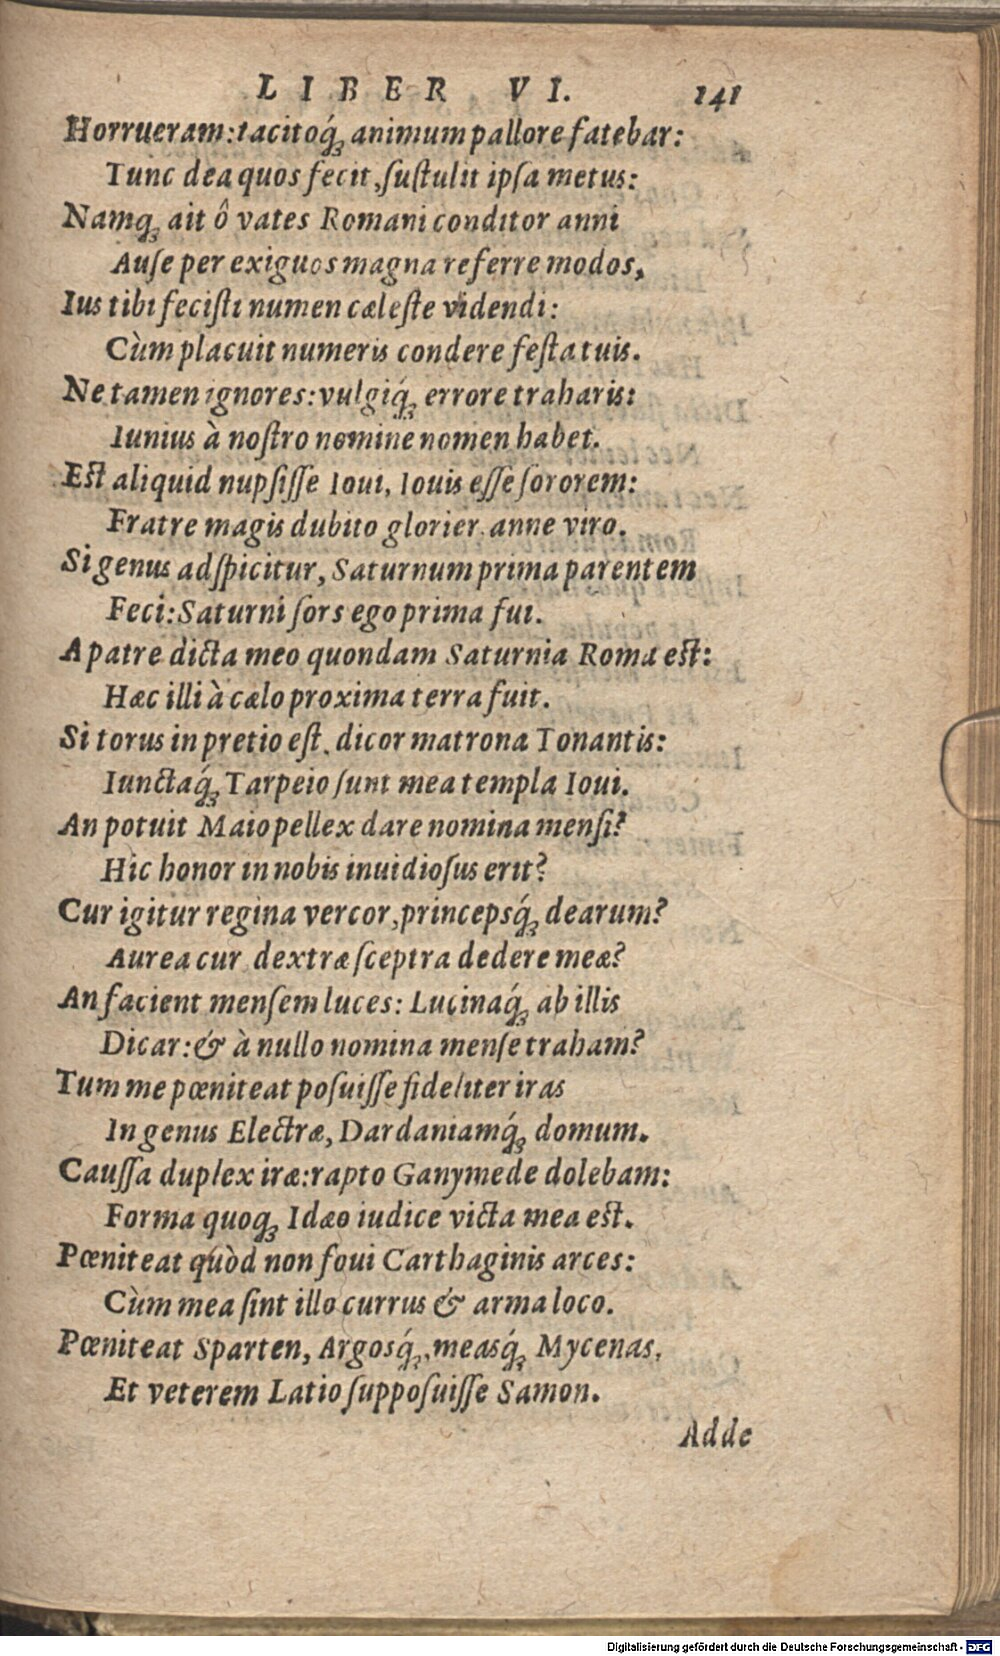 LIBER VI. 141
Horrueram: tacitoq́ꝫ animum pallore fatebar:
Tunc dea quos fecit, ſuſtulit ipſa metus:
Namqꝫ ait ô vates Romani conditor anni
Auſe per exiguos magna referre modos,
Ius tibi feciſti numen cæleſte videndi:
Cùm placuit numeris condere feſta tuis.
Ne tamen ignores: vulgiq́ꝫ errore traharis:
Iunius à noſtro nomine nomen habet.
Eſt aliquid nupſiſſe Ioui, Iouis eſſe ſororem:
Fratre magis dubito glorier anne viro.
Si genus adſpicitur, Saturnum prima parentem
Feci: Saturni ſors ego prima fui.
A patre dicta meo quondam Saturnia Roma eſt:
Hæc illi à cælo proxima terra fuit.
Si torus in pretio eſt, dicor matrona Tonantis:
Iunctaq́ꝫ Tarpeio ſunt mea templa Ioui.
An potuit Maio pellex dare nomina menſi?
Hic honor in nobis inuidioſus erit?
Cur igitur regina vercor, princepsq́ꝫ dearum?
Aurea cur dextræ ſceptra dedere meæ?
An facient menſem luces: Lucinaq́ꝫ ab illis
Dicar: & à nullo nomina menſe traham?
Tum me pœniteat poſuiſſe fideliter iras
In genus Electræ, Dardaniamq́ꝫ domum.
Cauſſa duplex iræ: rapto Ganymede dolebam:
Forma quoqꝫ Idæo iudice victa mea eſt.
Pœniteat quòd non foui Carthaginis arces:
Cùm mea ſint illo currus & arma loco.
Pœniteat Sparten, Argosq́ꝫ, measq́ꝫ Mycenas,
Et veterem Latio ſuppoſuiſſe Samon.
Adde
Digitalisierung gefördert durch die Deutsche Forschungsgemeinschaft - DFG